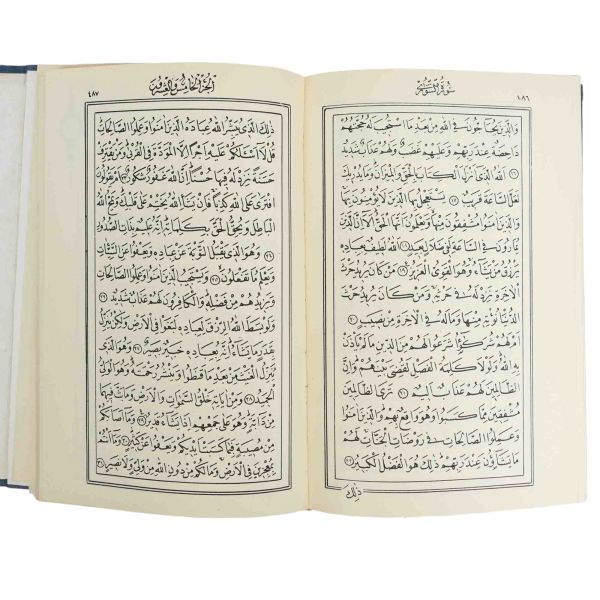 ٤٨٦
سُورَةُ الشُّورٰى
وَالَّذِينَ يُحَاجُّونَ فِي اللَّهِ مِنْ بَعْدِ مَا اسْتُجِيبَ لَهُ حُجَّتُهُمْ
دَاحِضَةٌ عِنْدَ رَبِّهِمْ وَعَلَيْهِمْ غَضَبٌ وَلَهُمْ عَذَابٌ شَدِيدٌ
١٦ اَللَّهُ الَّذِي اَنْزَلَ الْكِتَابَ بِالْحَقِّ وَالْمِيزَانَ وَمَا يُدْرِيكَ
لَعَلَّ السَّاعَةَ قَرِيبٌ ١٧ يَسْتَعْجِلُ بِهَا الَّذِينَ لَا يُؤْمِنُونَ بِهَا
وَالَّذِينَ اٰمَنُوا مُشْفِقُونَ مِنْهَا وَيَعْلَمُونَ اَنَّهَا الْحَقُّ اَلَا اِنَّ الَّذِينَ
يُمَارُونَ فِي السَّاعَةِ لَفِي ضَلَالٍ بَعِيدٍ ١٨ اَللَّهُ لَطِيفٌ بِعِبَادِهِ
يَرْزُقُ مَنْ يَشَاءُ وَهُوَ الْقَوِيُّ الْعَزِيزُ ١٩ مَنْ كَانَ يُرِيدُ حَرْثَ
الْاٰخِرَةِ نَزِدْ لَهُ فِي حَرْثِهِ وَمَنْ كَانَ يُرِيدُ حَرْثَ
الدُّنْيَا نُؤْتِهِ مِنْهَا وَمَا لَهُ فِي الْاٰخِرَةِ مِنْ نَصِيبٍ ٢٠
اَمْ لَهُمْ شُرَكٰٓؤُا شَرَعُوا لَهُمْ مِنَ الدِّينِ مَا لَمْ يَأْذَنْ
بِهِ اللَّهُ وَلَوْلَا كَلِمَةُ الْفَصْلِ لَقُضِيَ بَيْنَهُمْ وَاِنَّ
الظَّالِمِينَ لَهُمْ عَذَابٌ اَلِيمٌ ٢١ تَرَى الظَّالِمِينَ
مُشْفِقِينَ مِمَّا كَسَبُوا وَهُوَ وَاقِعٌ بِهِمْ وَالَّذِينَ اٰمَنُوا
وَعَمِلُوا الصَّالِحَاتِ فِي رَوْضَاتِ الْجَنَّاتِ لَهُمْ
مَا يَشَاؤُنَ عِنْدَ رَبِّهِمْ ذٰلِكَ هُوَ الْفَضْلُ الْكَبِيرُ ٢٢
ذٰلِكَ
اَلْجُزْءُ الْخَامِسُ وَالْعِشْرُونَ
٤٨٧
ذٰلِكَ الَّذِي يُبَشِّرُ اللَّهُ عِبَادَهُ الَّذِينَ اٰمَنُوا وَعَمِلُوا الصَّالِحَاتِ
قُلْ لَا اَسْئَلُكُمْ عَلَيْهِ اَجْرًا اِلَّا الْمَوَدَّةَ فِي الْقُرْبٰى وَمَنْ يَقْتَرِفْ
حَسَنَةً نَزِدْ لَهُ فِيهَا حُسْنًا اِنَّ اللَّهَ غَفُورٌ شَكُورٌ ٢٣ اَمْ يَقُولُونَ
افْتَرٰى عَلَى اللَّهِ كَذِبًا فَاِنْ يَشَأِ اللَّهُ يَخْتِمْ عَلٰى قَلْبِكَ وَيَمْحُ اللَّهُ
الْبَاطِلَ وَيُحِقُّ الْحَقَّ بِكَلِمَاتِهِ اِنَّهُ عَلِيمٌ بِذَاتِ الصُّدُورِ
٢٤ وَهُوَ الَّذِي يَقْبَلُ التَّوْبَةَ عَنْ عِبَادِهِ وَيَعْفُوا عَنِ السَّيِّئَاتِ
وَيَعْلَمُ مَا تَفْعَلُونَ ٢٥ وَيَسْتَجِيبُ الَّذِينَ اٰمَنُوا وَعَمِلُوا الصَّالِحَاتِ
وَيَزِيدُهُمْ مِنْ فَضْلِهِ وَالْكَافِرُونَ لَهُمْ عَذَابٌ شَدِيدٌ ٢٦
وَلَوْ بَسَطَ اللَّهُ الرِّزْقَ لِعِبَادِهِ لَبَغَوْا فِي الْاَرْضِ وَلٰكِنْ يُنَزِّلُ
بِقَدَرٍ مَا يَشَاءُ اِنَّهُ بِعِبَادِهِ خَبِيرٌ بَصِيرٌ ٢٧ وَهُوَ الَّذِي
يُنَزِّلُ الْغَيْثَ مِنْ بَعْدِ مَا قَنَطُوا وَيَنْشُرُ رَحْمَتَهُ وَهُوَ الْوَلِيُّ
الْحَمِيدُ ٢٨ وَمِنْ اٰيَاتِهِ خَلْقُ السَّمٰوَاتِ وَالْاَرْضِ وَمَا بَثَّ فِيهِمَا
مِنْ دَابَّةٍ وَهُوَ عَلٰى جَمْعِهِمْ اِذَا يَشَاءُ قَدِيرٌ ٢٩ وَمَا اَصَابَكُمْ
مِنْ مُصِيبَةٍ فَبِمَا كَسَبَتْ اَيْدِيكُمْ وَيَعْفُوا عَنْ كَثِيرٍ ٣٠ وَمَا اَنْتُمْ
بِمُعْجِزِينَ فِي الْاَرْضِ وَمَا لَكُمْ مِنْ دُونِ اللَّهِ مِنْ وَلِيٍّ وَلَا نَصِيرٍ ٣١